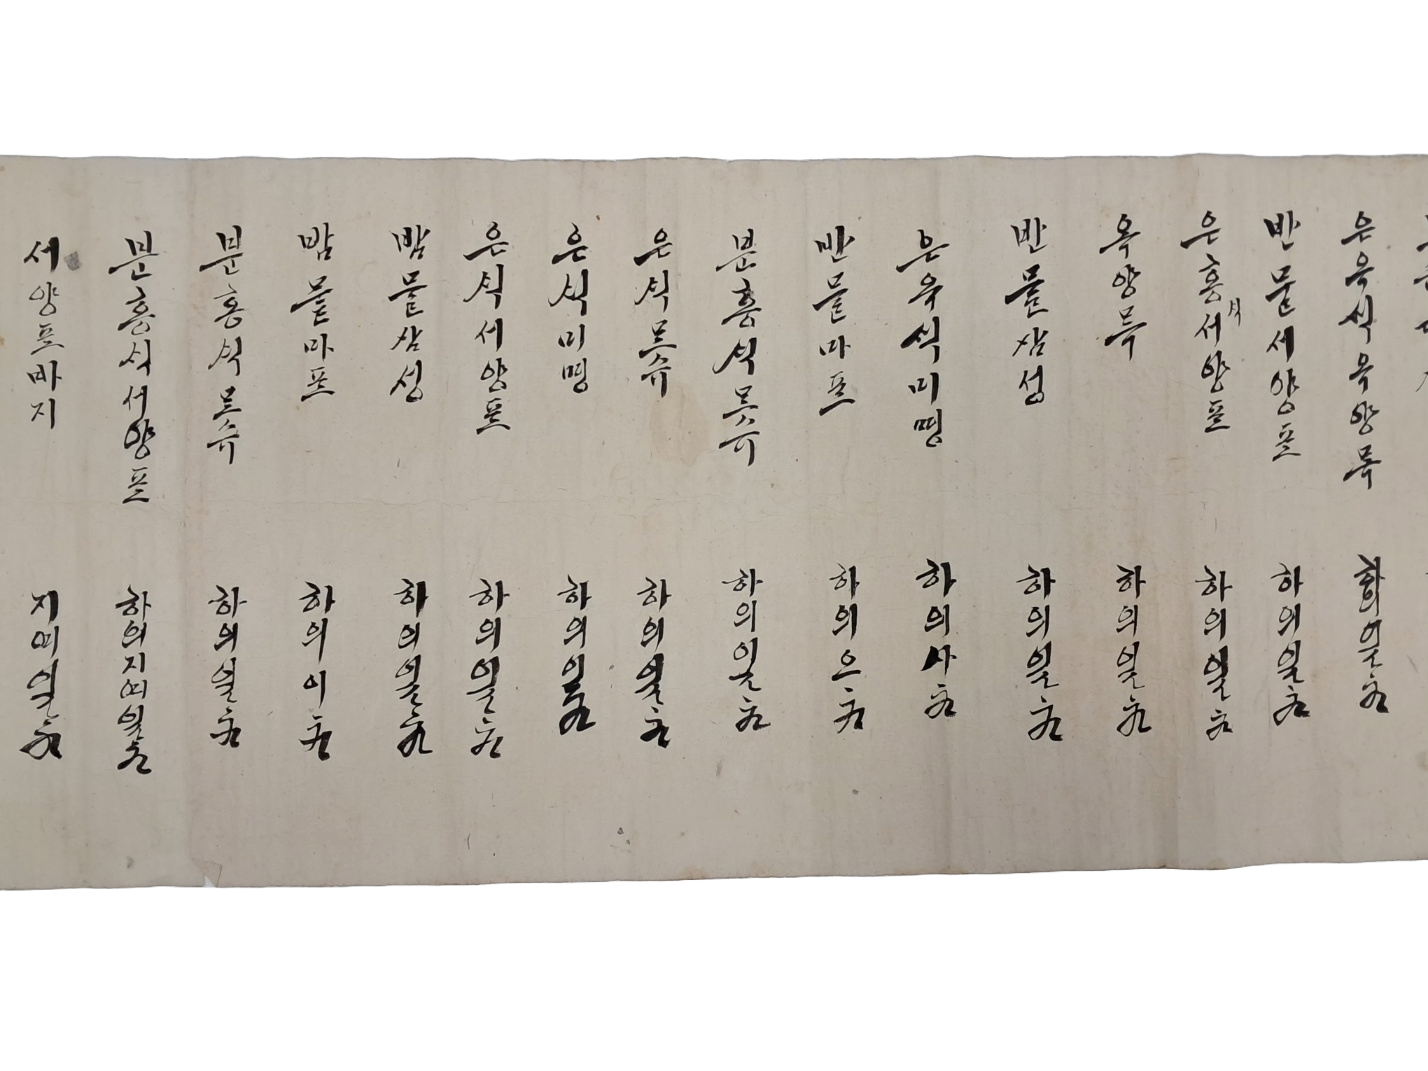 은옥식옥양목 하의일
반물세양포 하의일
은홍식서양포 하의일
옥양목 하의일
반물삼성 하의일
은옥식미명 하의사
반물마포 하의으
분홍식모슈 하의일
은식모슈 하의일
은식미명 하의일
은식서양포 하의일
밤물삼성 하의일
밤물마포 하의이
분홍식모슈 하의일
분홍식서양포 하의지여일
서양포바지 지여일